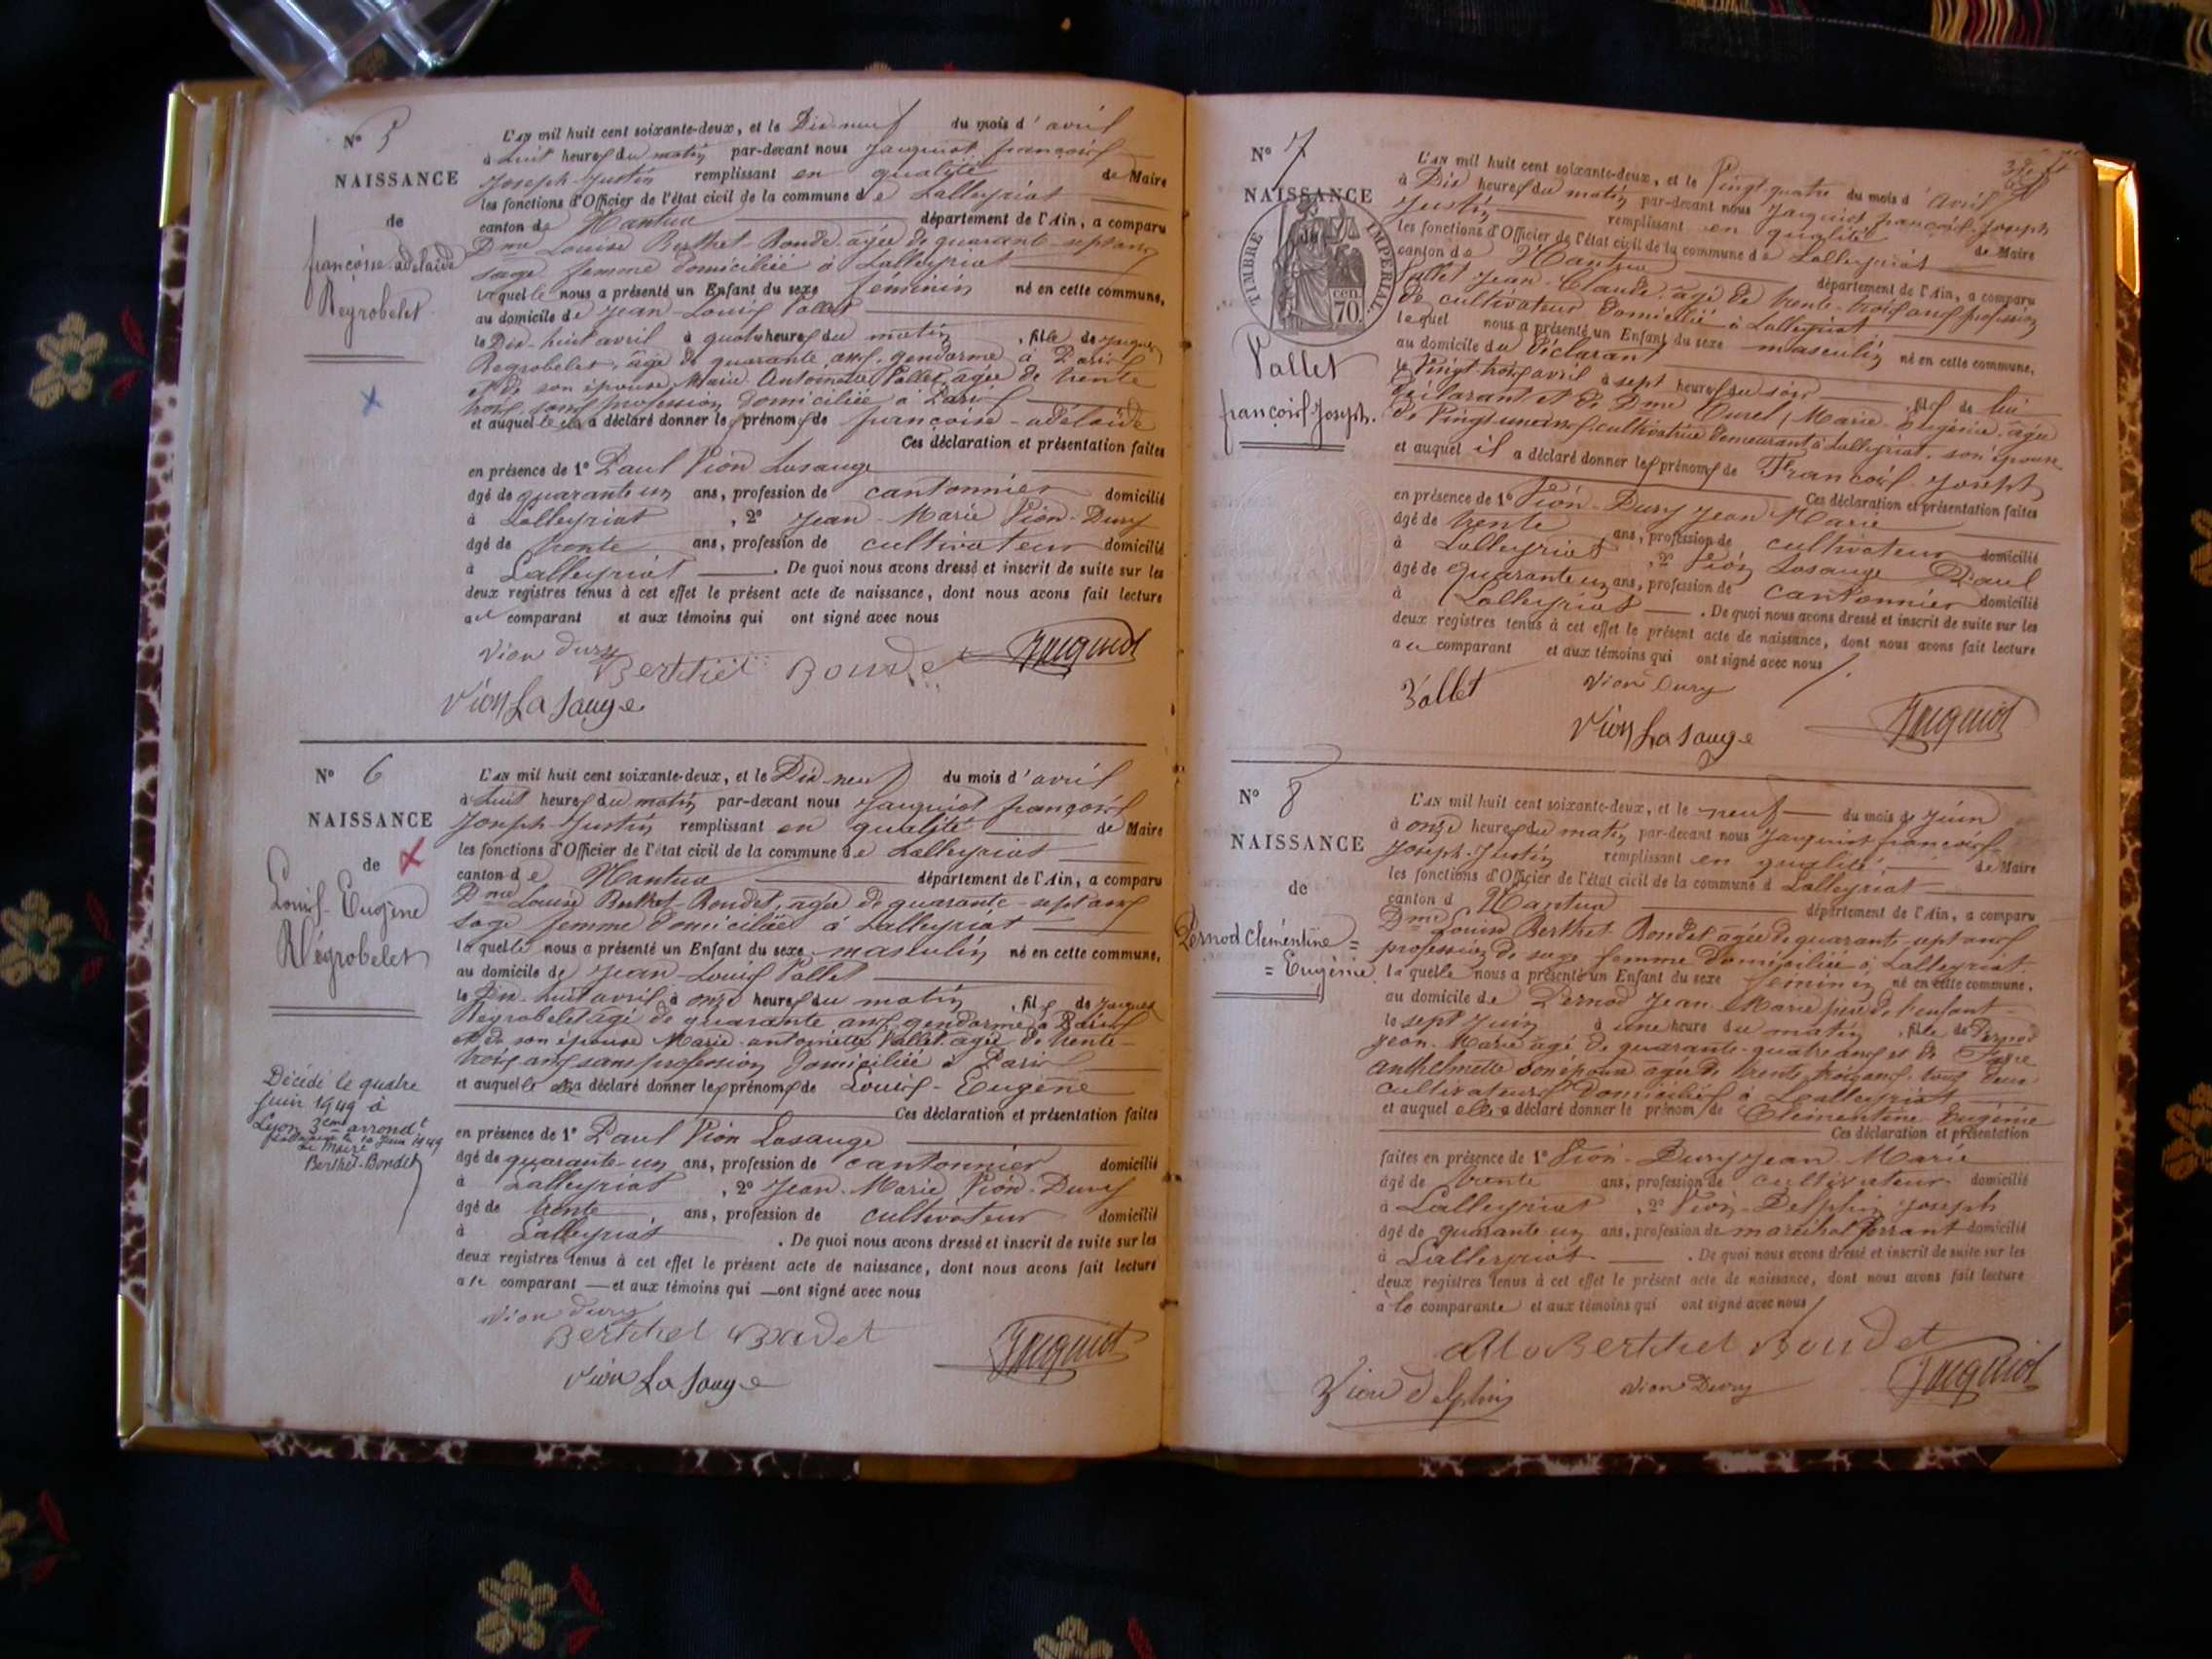 Nº 5
NAISSANCE
de
françoise adélaïde
Régrobelet
L'AN mil huit cent soixante-deux, et le Dix-neuf du mois d'avril
à huit heures du matin par-devant nous Jacquiot françois
Joseph-Justin remplissant en qualité de Maire
les fonctions d'Officier de l'état civil de la commune de Lalleyriat
canton de Nantua département de l'Ain, a comparu
Dme Louise Berthet-Bondet âgée de quarante-sept ans
sage femme domiciliée à Lalleyriat
laquelle nous a présenté un Enfant du sexe féminin né en cette commune,
au domicile de Jean-Louis Vallet
le Dix-huit avril à quatre heures du matin, fille de Jacques
Regrobelet, âgé de quarante ans, gendarme à Paris
et de son épouse Marie Antoinette Vallet, âgée de trente
trois, sans profession domiciliée à Paris
et auquel elle a déclaré donner les prénoms de françoise-adélaïde
Ces déclaration et présentation faites
en présence de 1º Paul Vion Lasauge
âgé de quarante un ans, profession de cantonnier domicilié
à Lalleyriat, 2º Jean-Marie Vion-Dury
âgé de trente ans, profession de cultivateur domicilié
à Lalleyriat. De quoi nous avons dressé et inscrit de suite sur les
deux registres tenus à cet effet le présent acte de naissance, dont nous avons fait lecture
au comparant et aux témoins qui ont signé avec nous
Vion Dury
Berthet Bondet
Jacquiot
Vion La Sauge
Nº 6
NAISSANCE
de
Louis-Eugène
Régrobelet
Décédé le quatre
Juin 1949 à
Lyon 3eme arrondt
le 10 Juin 1949
Le Maire
Berthet-Bondet
L'AN mil huit cent soixante-deux, et le Dix-neuf du mois d'avril
à huit heures du matin par-devant nous Jacquiot françois
Joseph-Justin remplissant en qualité de Maire
les fonctions d'Officier de l'état civil de la commune de Lalleyriat
canton de Nantua département de l'Ain, a comparu
Dme Louise Berthet-Bondet, âgée de quarante-sept ans
sage femme domiciliée à Lalleyriat
laquelle nous a présenté un Enfant du sexe masculin né en cette commune,
au domicile de Jean-Louis Vallet
le Dix-huit avril à onze heures du matin, fils de Jacques
Regrobelet âgé de quarante ans, gendarme à Paris
et de son épouse Marie-antoinette Vallet âgée de trente-
trois ans sans profession domiciliée à Paris
et auquel elle a déclaré donner les prénoms de Louis-Eugène
Ces déclaration et présentation faites
en présence de 1º Paul Vion Lasauge
âgé de quarante-un ans, profession de cantonnier domicilié
à Lalleyriat, 2º Jean-Marie Vion-Dury
âgé de trente ans, profession de cultivateur domicilié
à Lalleyriat. De quoi nous avons dressé et inscrit de suite sur les
deux registres tenus à cet effet le présent acte de naissance, dont nous avons fait lecture
au comparant et aux témoins qui ont signé avec nous
Vion Dury
Berthet Bondet
Jacquiot
Vion La Sauge
Nº 7
NAISSANCE
TIMBRE IMPERIAL
70 cen.
Vallet
françois Joseph.
L'AN mil huit cent soixante-deux, et le Vingt-quatre du mois d'Avril
à Dix heures du matin par-devant nous Jacquiot françois Joseph
Justin remplissant en qualité de Maire
les fonctions d'Officier de l'état civil de la commune de Lalleyriat
canton de Nantua département de l'Ain, a comparu
Vallet Jean-Claude, âgé de trente-trois ans profession
de cultivateur domicilié à Lalleyriat
lequel nous a présenté un Enfant du sexe masculin né en cette commune,
au domicile du Déclarant
le Vingt-trois avril à sept heures du soir, fils de lui
déclarant et de Dme Curel, Marie-Eugénie, âgée
de Vingt-un ans, cultivatrice demeurant à Lalleyriat, son épouse
et auquel il a déclaré donner les prénoms de François Joseph
Ces déclaration et présentation faites
en présence de 1º Vion-Dury Jean Marie
âgé de trente ans, profession de cultivateur domicilié
à Lalleyriat, 2º Vion Lasauge Paul
âgé de quarante un ans, profession de cantonnier domicilié
à Lalleyriat. De quoi nous avons dressé et inscrit de suite sur les
deux registres tenus à cet effet le présent acte de naissance, dont nous avons fait lecture
au comparant et aux témoins qui ont signé avec nous
Vallet
Vion Dury
Vion La Sauge
Jacquiot
Nº 8
NAISSANCE
de
Pernod Clémentine =
= Eugénie
L'AN mil huit cent soixante-deux, et le neuf du mois de Juin
à onze heures du matin par-devant nous Jacquiot françois
Joseph-Justin remplissant en qualité de Maire
les fonctions d'Officier de l'état civil de la commune d Lalleyriat
canton d Nantua département de l'Ain, a comparu
Dme Louise Berthet Bondet âgée de quarante-sept ans
profession de sage femme domiciliée à Lalleyriat.
laquelle nous a présenté un Enfant du sexe féminin né en cette commune,
au domicile de Pernod Jean-Marie père de l'enfant
le sept Juin à une heure du matin, fille de Pernod
Jean-Marie âgé de quarante-quatre ans et de Favre
Anthelmette son épouse âgée de trente trois ans, tous deux
cultivateurs domiciliés à Lalleyriat
et auquel elle a déclaré donner le prénom de Clémentine Eugénie
Ces déclaration et présentation
faites en présence de 1º Vion-Dury Jean-Marie
âgé de trente ans, profession de cultivateur domicilié
à Lalleyriat, 2º Vion-Delphin Joseph
âgé de quarante un ans, profession de maréchal ferrant domicilié
à Lalleyriat. De quoi nous avons dressé et inscrit de suite sur les
deux registres tenus à cet effet le présent acte de naissance, dont nous avons fait lecture
à la comparante et aux témoins qui ont signé avec nous
Berthet Bondet
Vion Delphin
Vion Dury
Jacquiot